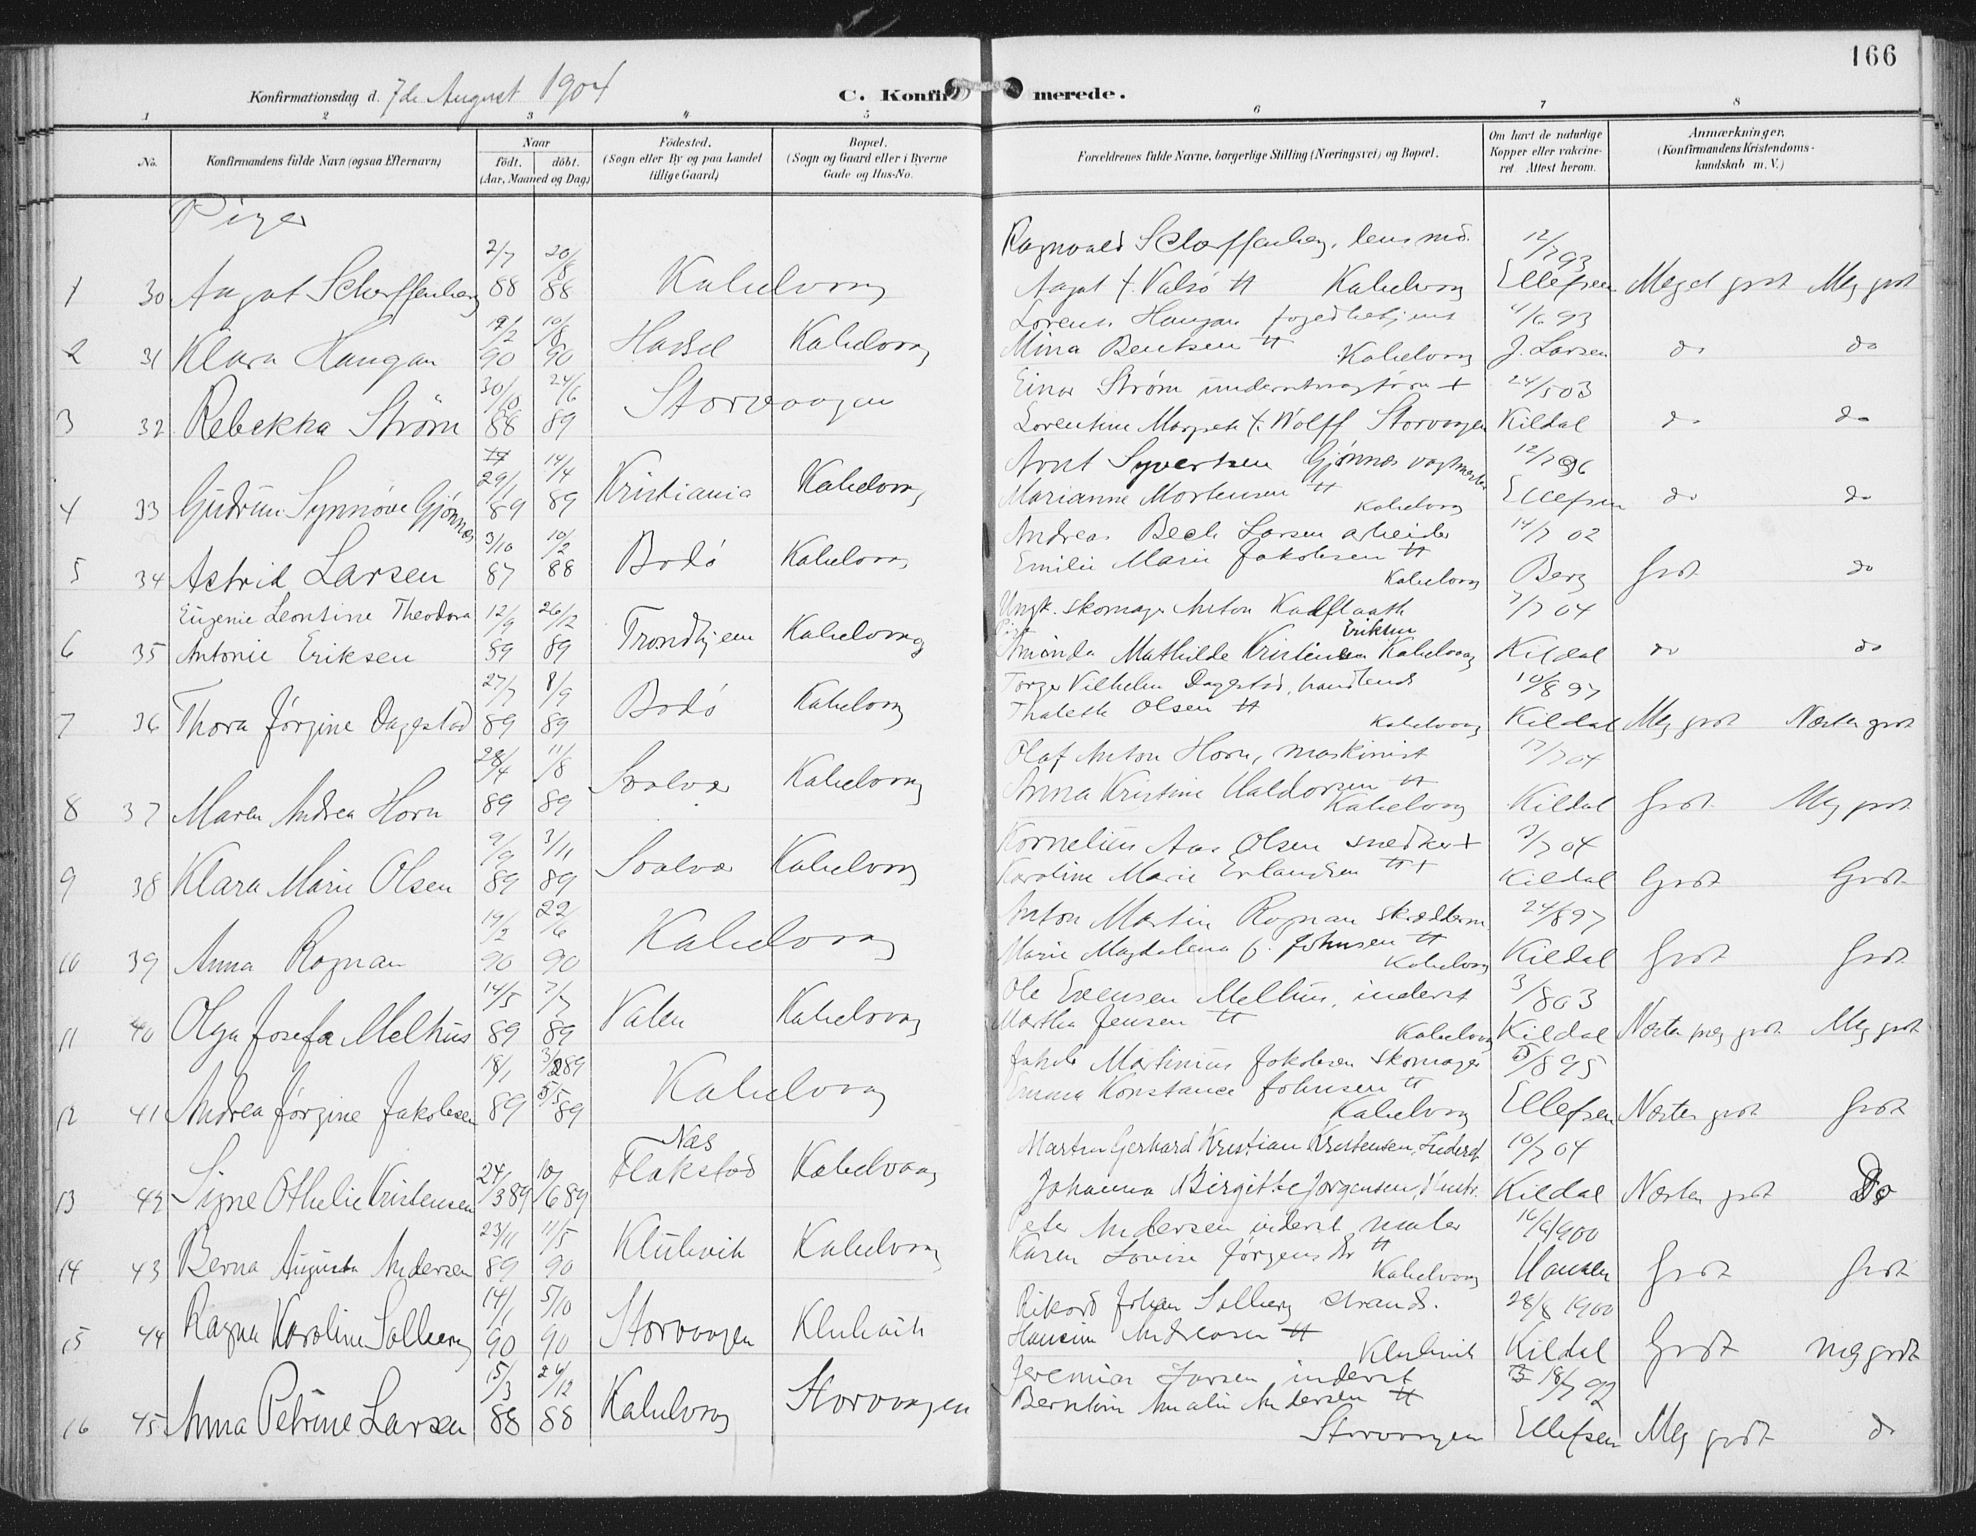 166
Konfirmationsdag d. 7de August 1904
C. Konfirmerede.
1 2 3 4 5 6 7 8
No. Konfirmandens fulde Navn (ogsaa Efternavn) Naar födt. döbt. (Aar, Maaned og Dag) Födested. (Sogn eller By og paa Landet tillige Gaard) Bopæl. (Sogn og Gaard eller i Byerne Gade og Hus-No. Forældrenes fulde Navne, borgerlige Stilling (Næringsvei) og Bopæl. Om havt de naturlige Kopper eller vakcineret Attest herom. Anmærkninger, (Konfirmandens Kristendomskundskab m. V.)
Piger
2/7 20/8 Ragnvald Scharffenberg, lensmd. 12/7 93
1 30 Aagot Scharffenberg 88 88 Kabelvaag Aagot f. Valsø Kabelvaag Ellefsen Meget godt Meg godt
19/2 10/8 Lorents Haugan fogedbetjent 4/6 93
2 31 Klara Haugan 90 90 Hadsel Kabelvaag Mina Bentsen Kabelvaag J. Larsen do do
30/10 24/6 Einar Strøm + 24/5 03
3 32 Rebekka Strøm 88 89 Storvaagen Lorentine Margrete f. Wolff Storvaagen Kildal do do
29/1 14/4 Arnt Syvertsen Gjønnæs vagtmester 12/7 96
4 33 Gudrun Synnøve Gjønnæs 89 89 Kristiania Kabelvaag Marianne Mortensen Kabelvaag Ellefsen do do
3/10 10/2 Andreas Bech Larsen arbeider 14/7 02
5 34 Astrid Larsen 87 88 Bodø Kabelvaag Emilie Marie Jakobsen Kabelvaag Berg Godt do
Eugenie Leontine Theodora 12/9 26/12 Ungk. skomager Anton Kadflaath 7/7 04
6 35 Antonie Eriksen 89 89 Trondhjem Kabelvaag Pige Aminda Mathilde Kristensen Eriksen Kabelvaag Kildal do do
27/7 8/9 Torger Vilhelm Dagestad, handlende 10/8 97
7 36 Thora Jørgine Dagestad 89 89 Bodø Kabelvaag Thalette Olsen Kabelvaag Kildal Meg godt Næsten godt
28/4 11/8 Olaf Anton Horn, maskinist 17/7 04
8 37 Maren Andrea Horn 89 89 Svolvær Kabelvaag Anna Kristine Haldorsen Kabelvaag Kildal Godt Meg godt
9/9 3/11 Kornelius Aas Olsen snedker + 7/7 04
9 38 Klara Marie Olsen 89 89 Svolvær Kabelvaag Karoline Marie Erlandsen + Kildal Godt Godt
19/2 22/6 Anton Martin Rognan skrædderm. 24/8 97
10 39 Anna Rognan 90 90 Kabelvaag Marie Magdalena f. Johnsen Kabelvaag Kildal Godt Godt
14/5 7/7 Ole Evensen Melhus, inderst 3/8 03
11 40 Olga Josefa Melhus 89 89 Valen Kabelvaag Martha Jensen Kabelvaag Kildal Næsten meg godt Meg godt
18/1 3/2 89 Jakob Martinius Jakobsen skomager 5/8 95
12 41 Andrea Jørgine Jakobsen 89 5/5 89 Kabelvaag Emma Konstance Johnsen Kabelvaag Ellefsen Næsten godt Godt
24/3 89 10/6 89 Næs Martin Gerhard Kristian Kristensen, Inderst 10/7 04
13 42 Signe Othelie Kristensen Flakstad Kabelvaag Johanna Birgitte Jørgensen, Hustr. Kildal Næsten godt Do
23/11 11/5 Peter Andersen inderst, maler 16/6 1900
14 43 Berna Augusta Andersen 89 90 Klubvik Kabelvaag Karen Lovise Jørgensdr Kabelvaag Hansen Godt Godt
14/1 5/10 Rikard Johan Solberg strands. 28/8 1900
15 44 Ragna Karoline Solberg 90 90 Storvaagen Klubvik Hansine Andreasen Klubvik Kildal Godt meg godt
15/3 26/12 Jeremias Larsen inderst 18/7 92
16 45 Anna Petrine Larsen 88 88 Kabelvaag Storvaagen Berntine Amalie Andersen Storvaagen Ellefsen Meg godt do